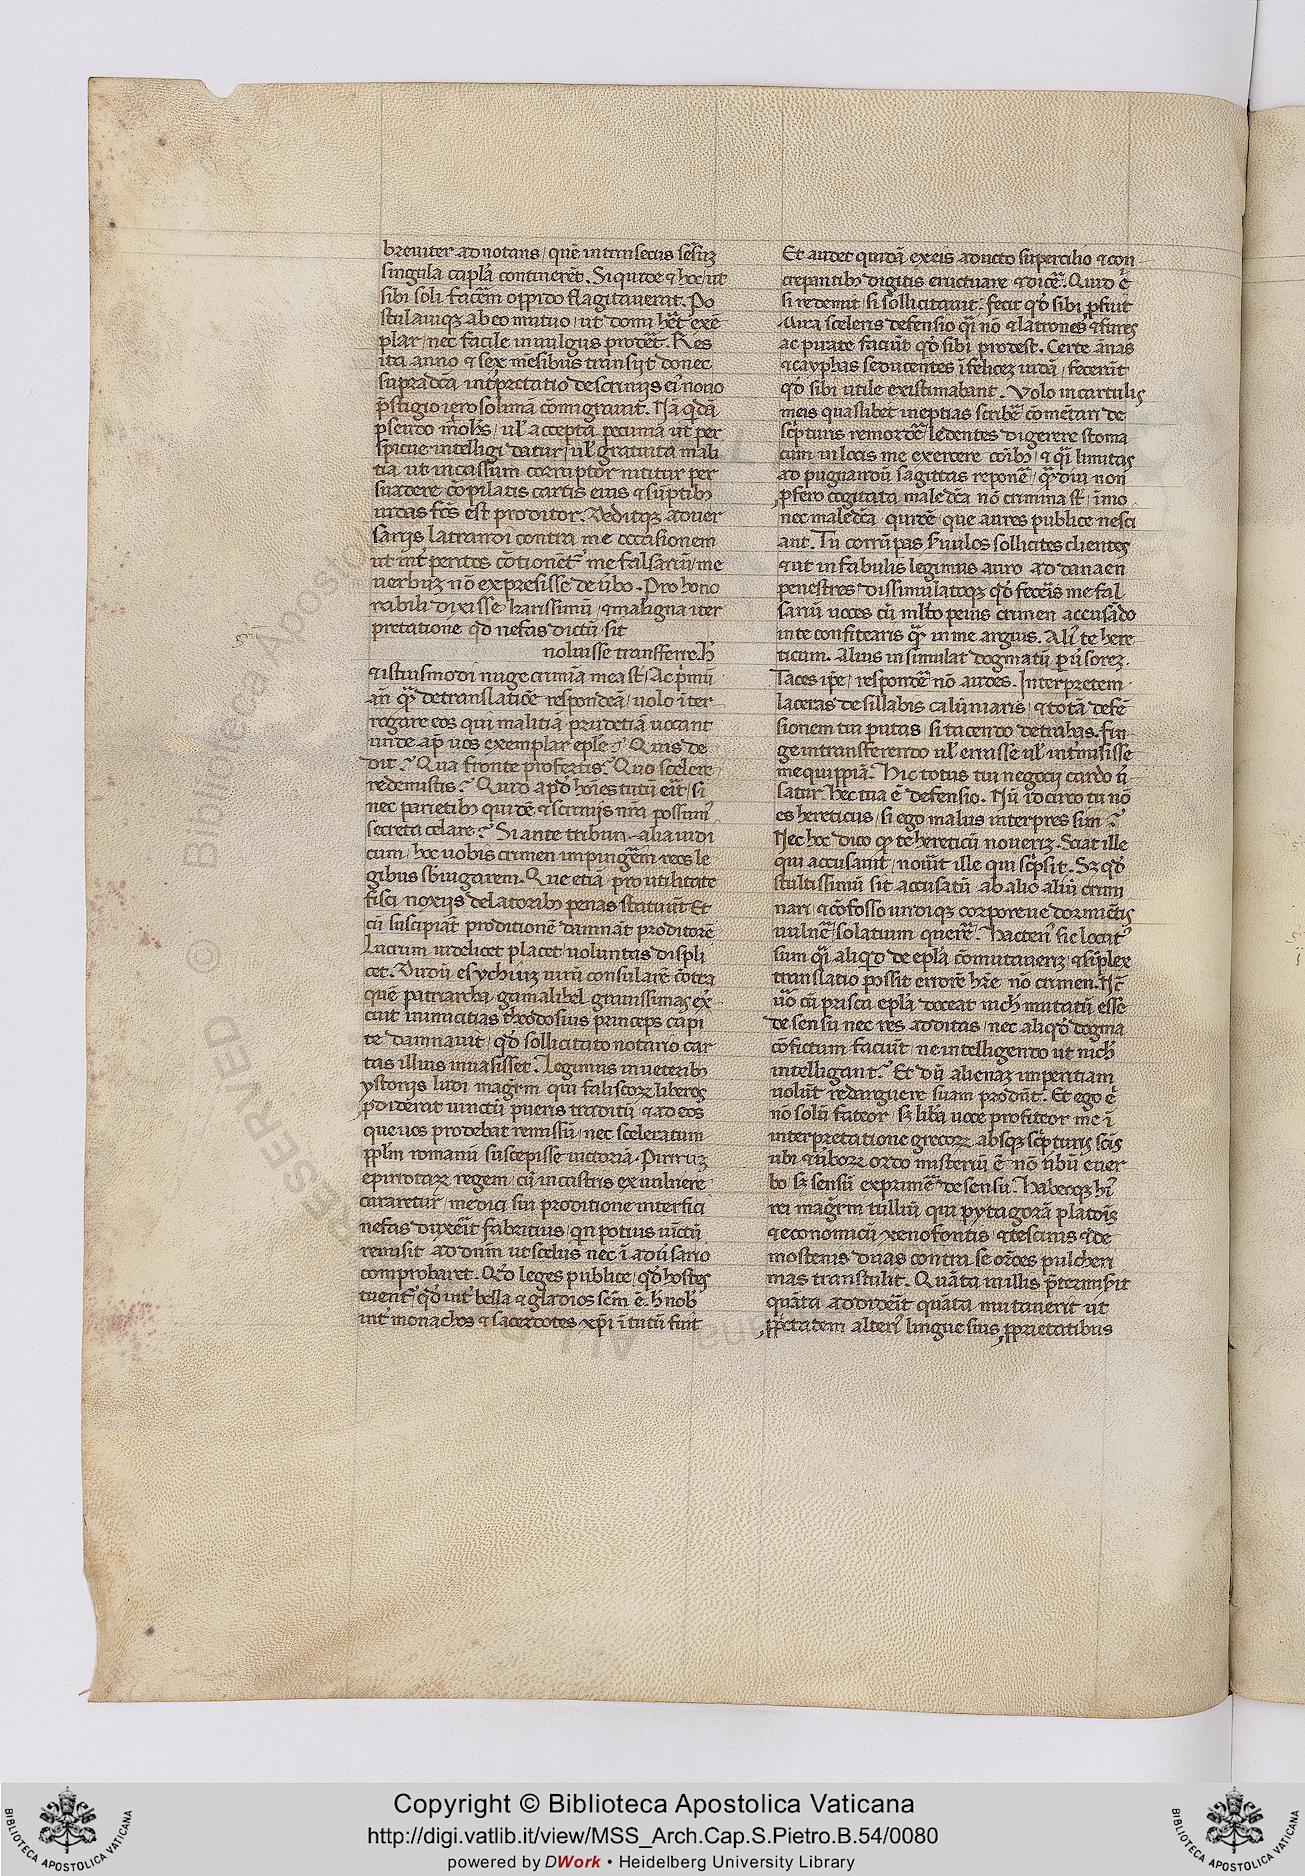 breuiter adnotans / quē intrinsecus sēsuȝ
singula capl̄a contineret̄. Siquidē & hoc / ut
sibi soli facēm oppido flagitauerat. Po
stulauiqȝ ab eo mutuo / ut domi hēt exē
plar / nec facile in uulgus prodet̄. Res
ita anno & sex mēsibus transiit donec
supradc̄a int̄pretatio de scriniis ei nouo
p̄stigio ierosolimā cōmigrauit. Nā qdā
pseudo mōhs / ul̄ accepta pecunia ut per
spicue intelligi datur / ul̄ gratuita mali
tia ut incassum corruptor nititur per
suadere cōpilatis cartis eius & sūptibȝ
iudas fc̄s est proditor. Deditqȝ aduer
sariis latrandi contra me occasionem
ut int̄ peritos cōtionet̄ me falsariū / me
uerbuȝ nō expresisse de ūbo. Pro hono
rabili dixisse karissimū / & maligna iter
pretatione qd nefas dictū sit
noluisse transferre. h̄
& istiusmodi nuge crimīa mea st̄. Ac p̄mū
añ q̄ de translatiōe respondeā / uolo īter
rogare eos qui malitiā prudētiā uocant
unde ap̄ uos exemplar epl̄e? Quis de
dit? Qua fronte profertis? Quo scelere
redemistis? Quid apd hoīes tutū erit / si
nec parietibȝ quidē & scriniis nr̄a possum̄
secreta celare? Si ante tribunalia iudi
cum / hoc uobis crimen impingēm reos le
gibus sb̄iugarem. Que etiā pro utilitate
fisci noxiis delatoribȝ penas statuūt Et
cū suscipiāt proditionē damnāt proditorē
Lucrum uidelicet placet uoluntas displi
cet. Dudū esychiuȝ uirū consularē cōtra
quē patriarcha gamalihel grauissimas ex
cuit inimicitias theodosius princeps capi
te damnauit / qd sollicitato notario car
tas illius inuasisset. Legimus in ueteribȝ
ystoriis ludi magr̄m qui faliscoꝝ liberos
p̄diderat uinctū pueris traditū & ad eos
quē uos prodebat remissū / nec sceleratum
ppl̄m romanū suscepisse uictoriā. Pirruȝ
epirrotaꝝ regem / cū in castris ex uulnere
curaretur / medici sui proditione interfici
nefas duxerit fabritius / qn potius uīctū
remisit ad dnm̄ ut scelus nec ī adūsario
comprobaret. Qd leges publice / qd hostes
tuent̄ qd int̄ bella & gladios scm̄ ē. h nob̄
int̄ monachos & sacerdotes xp̄i ītutū fuit
Et audet quidā ex eis aducto supercilio & con
crepantibȝ digitis eructuare & dicē. Quid ē
si redemit / si sollicitauit. fecit qd sibi p̄fuit
Mira sceleris defensio q̄i nō & latrones & fures
ac pirate faciūt qd sibi prodest. Certe ānas
& cayphas seducentes īfelicez iudā / fecerūt
qd sibi utile existimabant. Volo in cartulis
meis quaslibet ineptias scribē cōmētari de
scp̄turis remordē ledentes digerere stoma
cum in locis me exercere cōibȝ / & q̄i limitas
ad pugnandū sagittas reponē / q̄diu non
p̄fero cogitata maledc̄a nō crimina st̄ / īmo
nec maledc̄a quidē que aures publice nesci
ant. Tu corrūpas s̄uulos sollicites clientes
& ut in fabulis legimus auro ad danaen
penestres dissimulatoqȝ qd feceris me fal
sariū uoces cū ml̄to peius crimen accusādo
in te confitearis q̄ in me arguis. Ali te here
ticum. Alius insimulat dogmatū p̄uersorez.
Taces ipē / respondē nō audes. Interpretem
laceras de sillabis calūniaris / & totā defē
sionem tui putas / si tacendo detrahas. fin
ge in transferendo ul̄ errasse ul̄ int̄misisse
me quippiā. Hic totus tui negocii cardo ū
satur. hec tua ē defensio. Nū idcirco tu nō
es hereticus / si ego malus interpres sim?
Nec hoc dico q̄ te hereticū nouerȝ. Sciat ille
qui accusauit / nouit ille qui scp̄sit. Sȝ qd
stultissimū sit accusatū ab alio aliū crimi
nari & cōfosso undiqȝ corpore ue dormiētis
uulnē / solatium querē. Hacten̄ sic locut̄
sum q̄i aliqd de epl̄a cōmutauerȝ & simplex
translatio possit errorē hr̄e nō crimen. Nc̄
uo cū prisca epl̄a doceat nich̄ mutatū esse
de sensu nec res additas / nec aliqd dogma
cōfictum faciūt / ne intelligendo ut nich̄
intelligant? Et dū alienaȝ imperitiam
uolūt redarguere suam produt̄. Et ego ē
nō solū fateor / sȝ liba uoce profiteor me ī
interpretatione grecoꝝ absqȝ scp̄turis scīs
ubi & ūboꝝ ordo misteriū ē nō ūbū e uer
bo sȝ sensū exprimē de sensu. Habeoqȝ hī
rei magr̄m tulliū qui pytagorā platoīs
& economicū xenofontis / & escinis & de
mostenis duas contra se orōes pulcheri
mas transtulit. Quāta in illis p̄termiserit
quāta addiderit quāta mutauerit ut
pp̄etatem alterī lingue suis pp̄rietatibus
Copyright © Biblioteca Apostolica Vaticana
http://digi.vatlib.it/view/MSS_Arch.Cap.S.Pietro.B.54/0080
powered by DWork • Heidelberg University Library